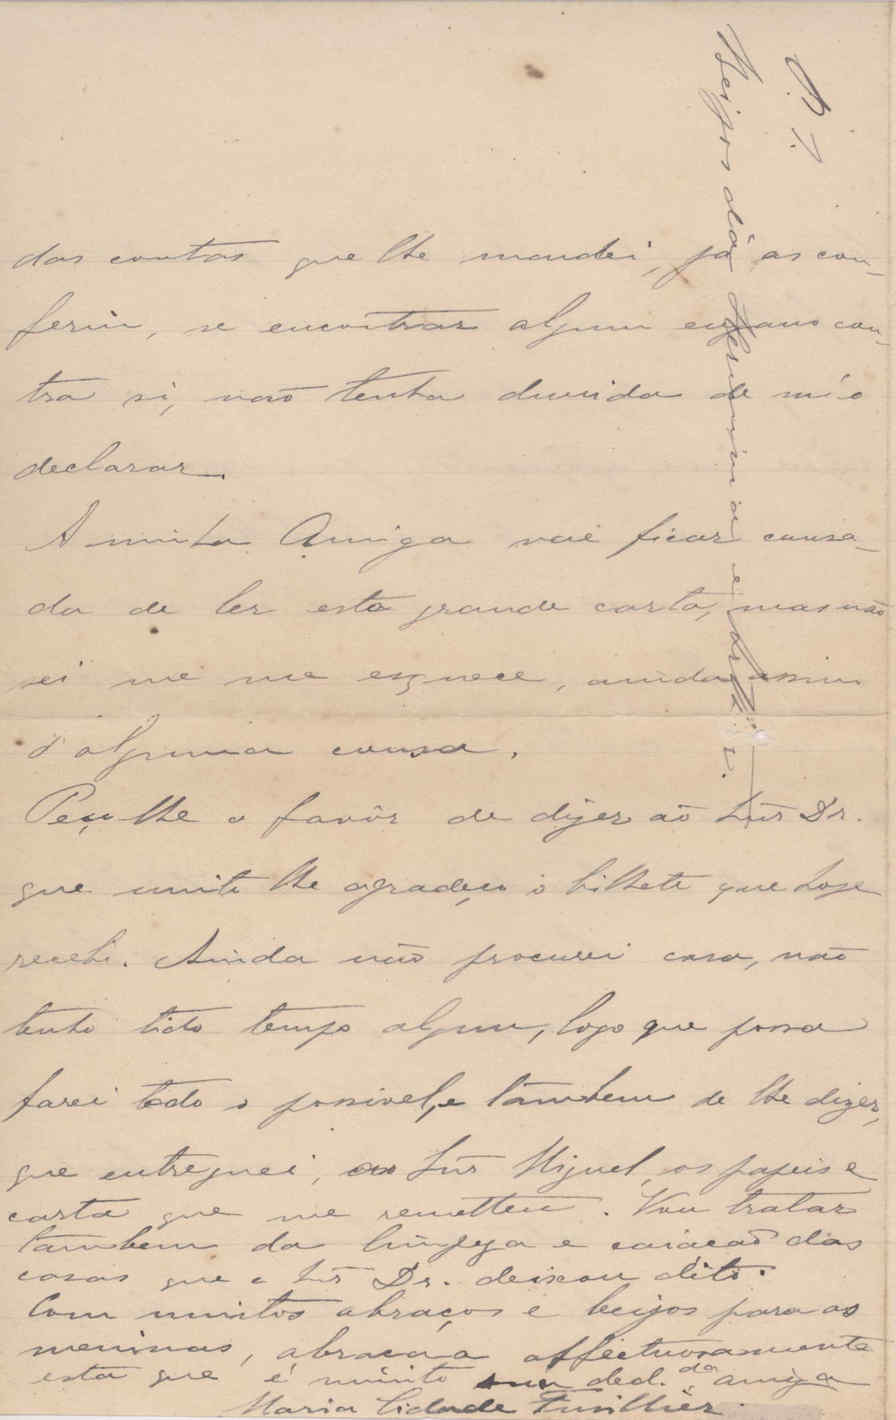 das contas que lhe mandei, já as con-
ferin, se encontrar algum engano con-
tra si, não tenha duvida de m'o
declarar.
A minha Amiga vai ficar cansa-
da de ler esta grande carta, mas não
sei me me esquece, ainda assim
d'alguma cousa.
Peço-lhe o favôr de dizer aõ Snr Dr.
que muito lhe agradeço o bilhete que hoje
recebi. Ainda não procurei casa, não
tenho tido tempo algum, logo que possa
farei todo o possivel, e tambem de lhe dizer,
que entreguei, ao Snr Miguel, os papeis e
carta que me remetteu. Vou tratar
tambem da limpeza e caiacaõ das
casas que o Snr Dr. deixou dito.
Com muitos abraços e beijos para as
meninas, abraca-a affectuosamente
esta que é muito sua ded.da amiga
Maria Cidade
P. S.
Beijos da Herminia e